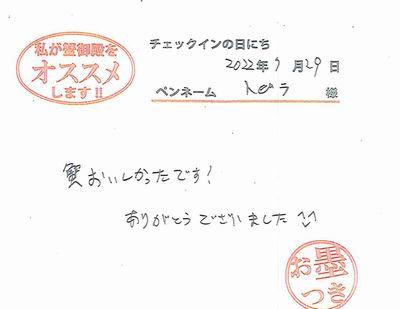 私が蟹御殿を
オススメ
します!!
チェックインの日にち
2022年9月29日
ペンネーム トビラ 様
おいしかったです！
ありがとうございました
お墨
つき